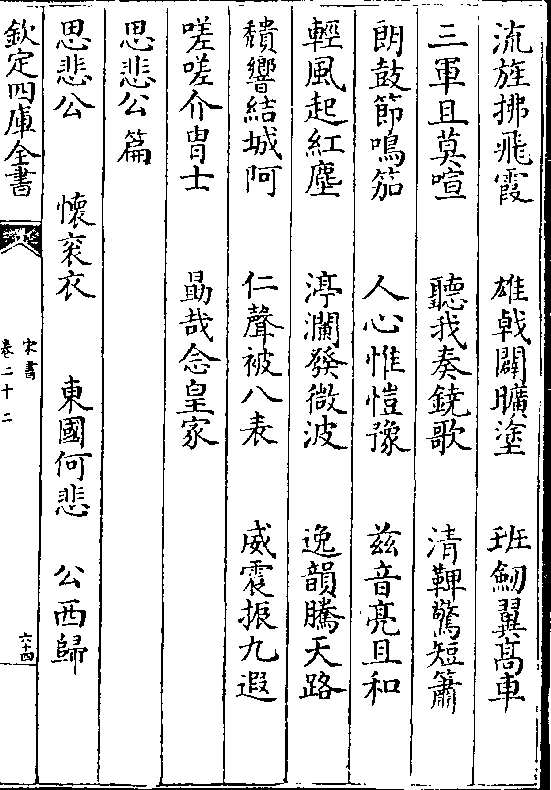 流旌拂飛霞　雄㦸闢曠塗　班劒翼髙車
三軍且莫喧　聽我奏鐃歌　清鞞驚短簫
朗鼓節鳴笳　人心惟愷豫　兹音亮且和
輕風起紅塵　渟瀾發微波　逸韻騰天路
穨響結城阿　仁聲被八表　威震振九遐
嗟嗟介胄士　勗哉念皇家
思悲公篇
思悲公　懷衮衣　東國何悲　公西歸
欽定四庫全書
宋書
卷二十二
六十四